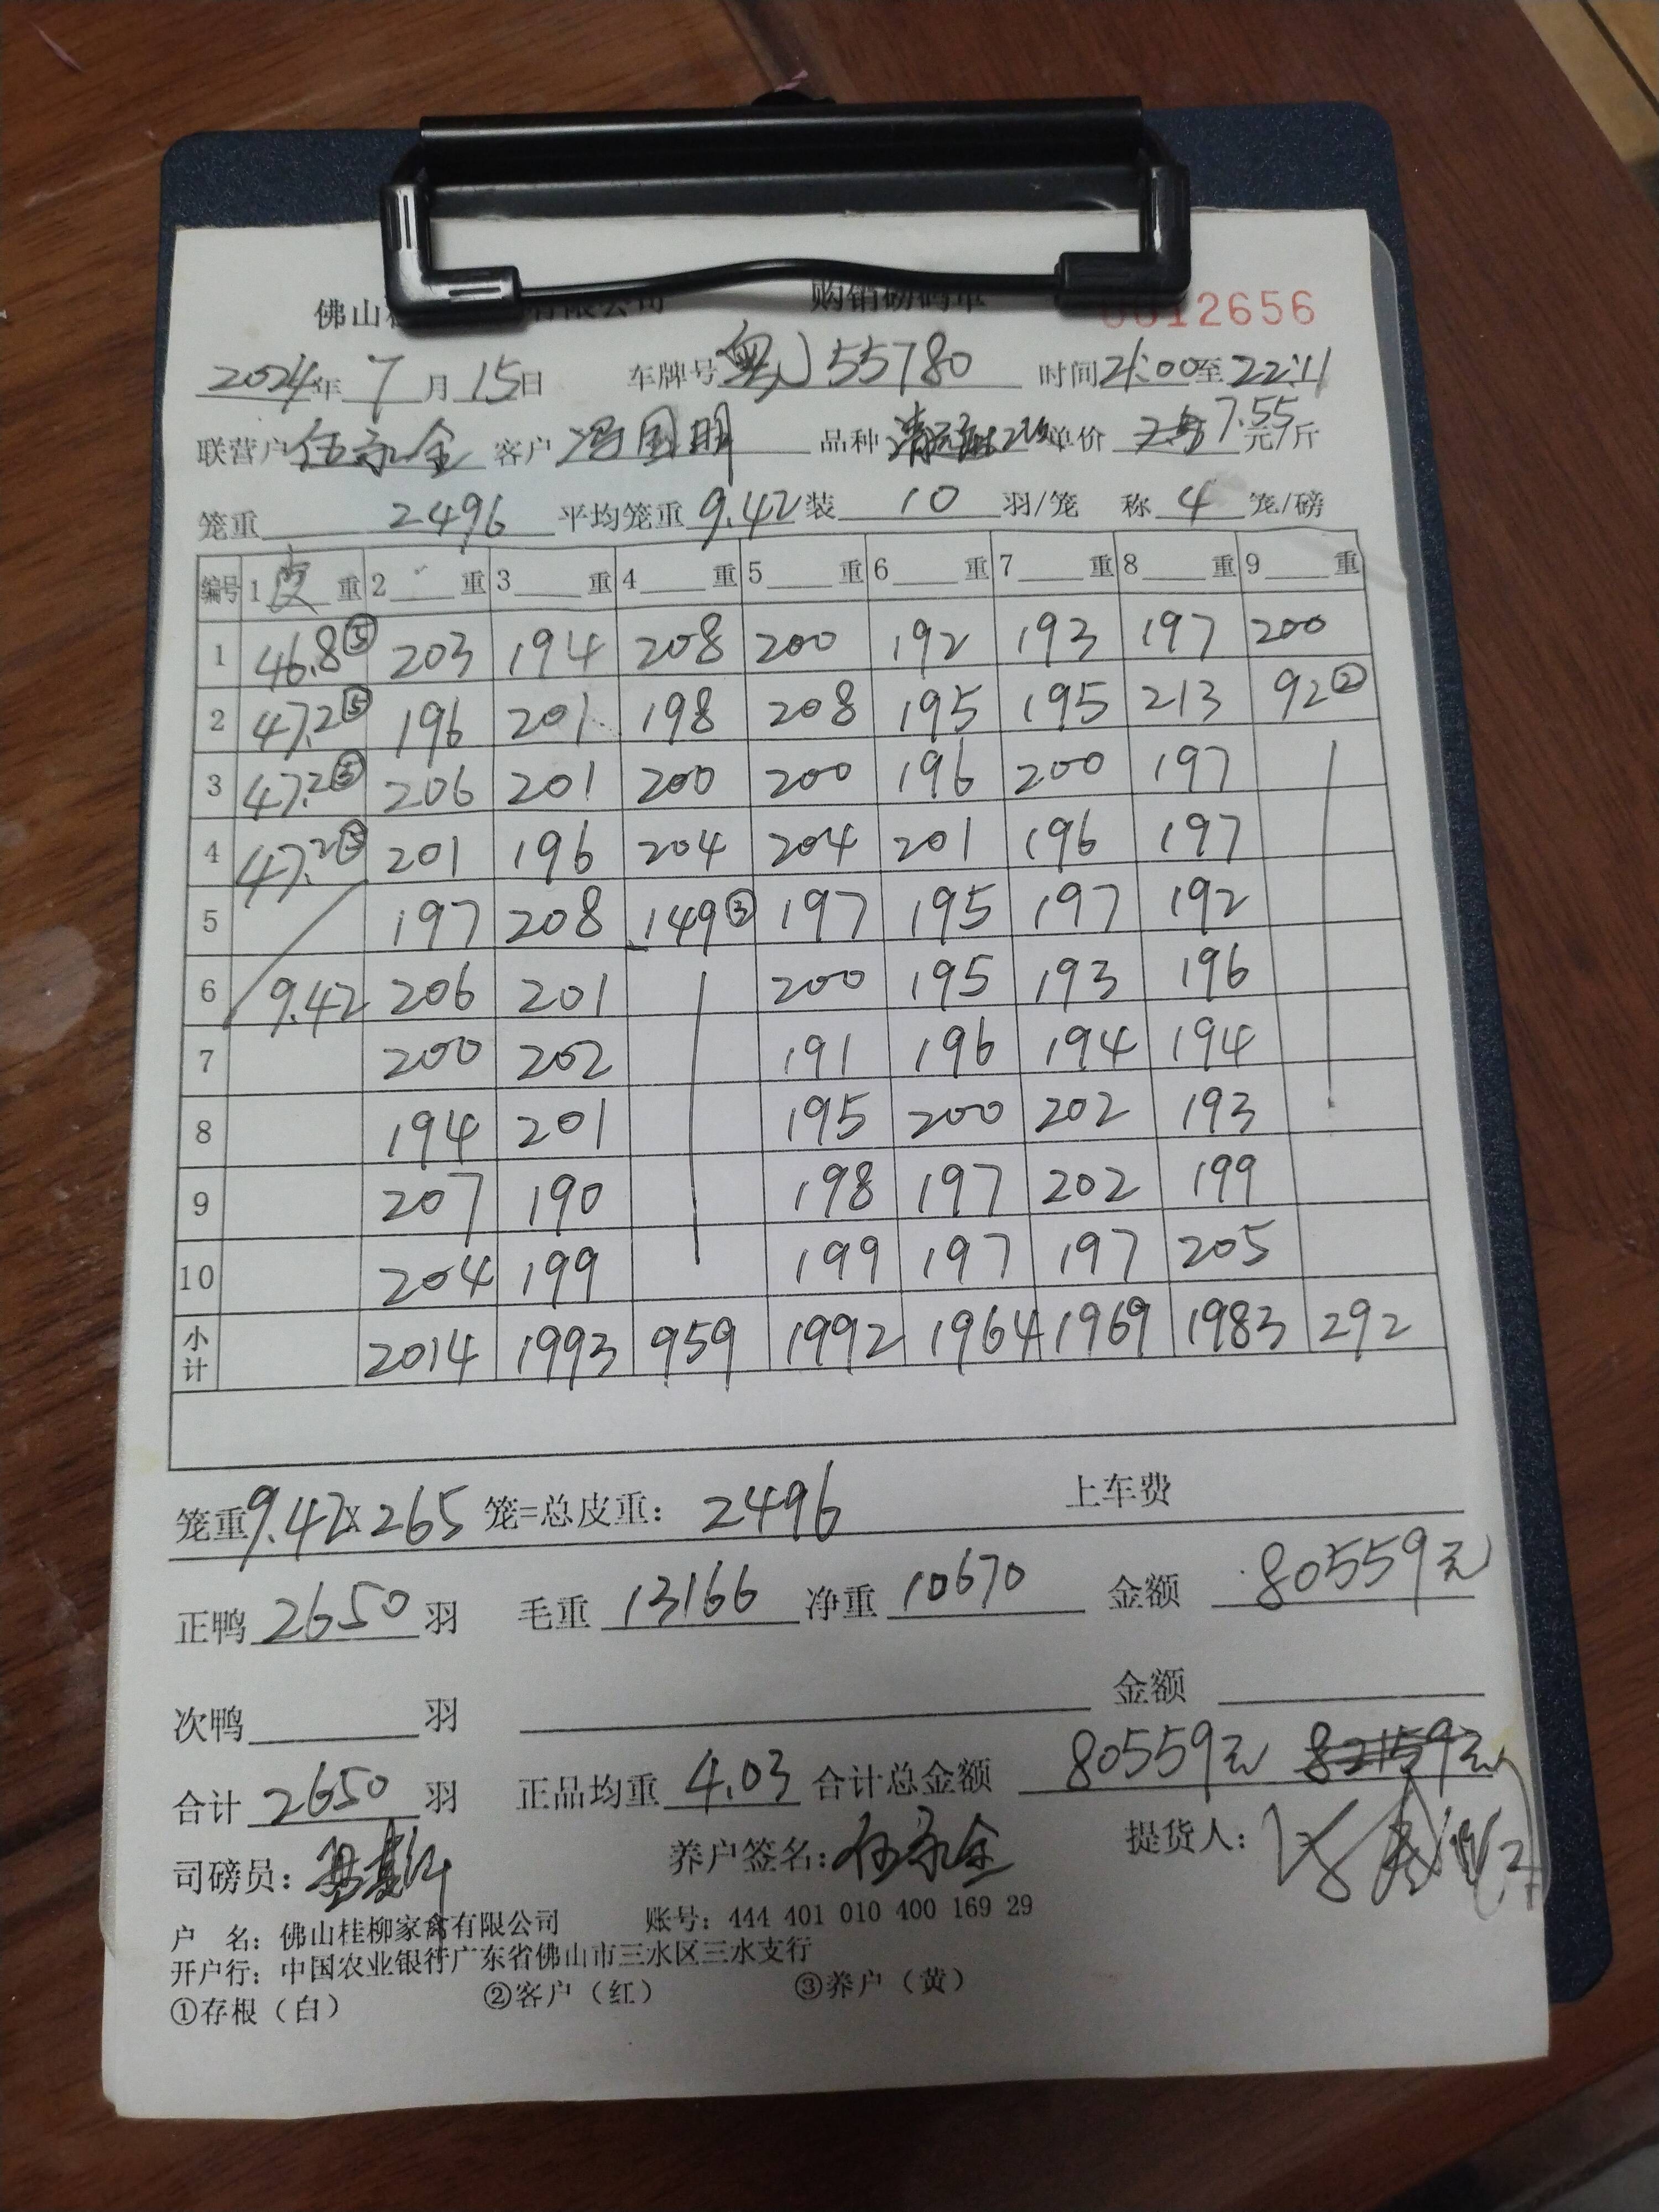 佛山 有限公司 购销磅码单 0012656
2024年 7月 15日 车牌号 粤J55780 时间 21:00至 22:11
联营户 伍永全 客户 冯国明 品种 单价 7.55 元/斤
笼重 2496 平均笼重 9.42 装 10 羽/笼 称 4 笼/磅
编号 1 皮 重 2 重 3 重 4 重 5 重 6 重 7 重 8 重 9 重
1 46.8⑤ 203 194 208 200 192 193 197 200
2 47.2⑤ 196 201 198 208 195 195 213 92②
3 47.2⑤ 206 201 200 200 196 200 197
4 47.2⑤ 201 196 204 204 201 196 197
5 197 208 149③ 197 195 197 192
6 9.42 206 201 200 195 193 196
7 200 202 191 196 194 194
8 194 201 195 200 202 193
9 207 190 198 197 202 199
10 204 199 199 197 197 205
小计 2014 1993 959 1992 1964 1969 1983 292
笼重 9.42 X 265 笼=总皮重: 2496 上车费
正鸭 2650 羽 毛重 13166 净重 10670 金额 80559元
次鸭 羽 金额
合计 2650 羽 正品均重 4.03 合计总金额 80559元 82159元
司磅员: 养户签名: 伍永全 提货人:
户 名: 佛山桂柳家禽有限公司 账号: 444 401 010 400 169 29
开户行: 中国农业银行广东省佛山市三水区三水支行
①存根(白) ②客户(红) ③养户(黄)